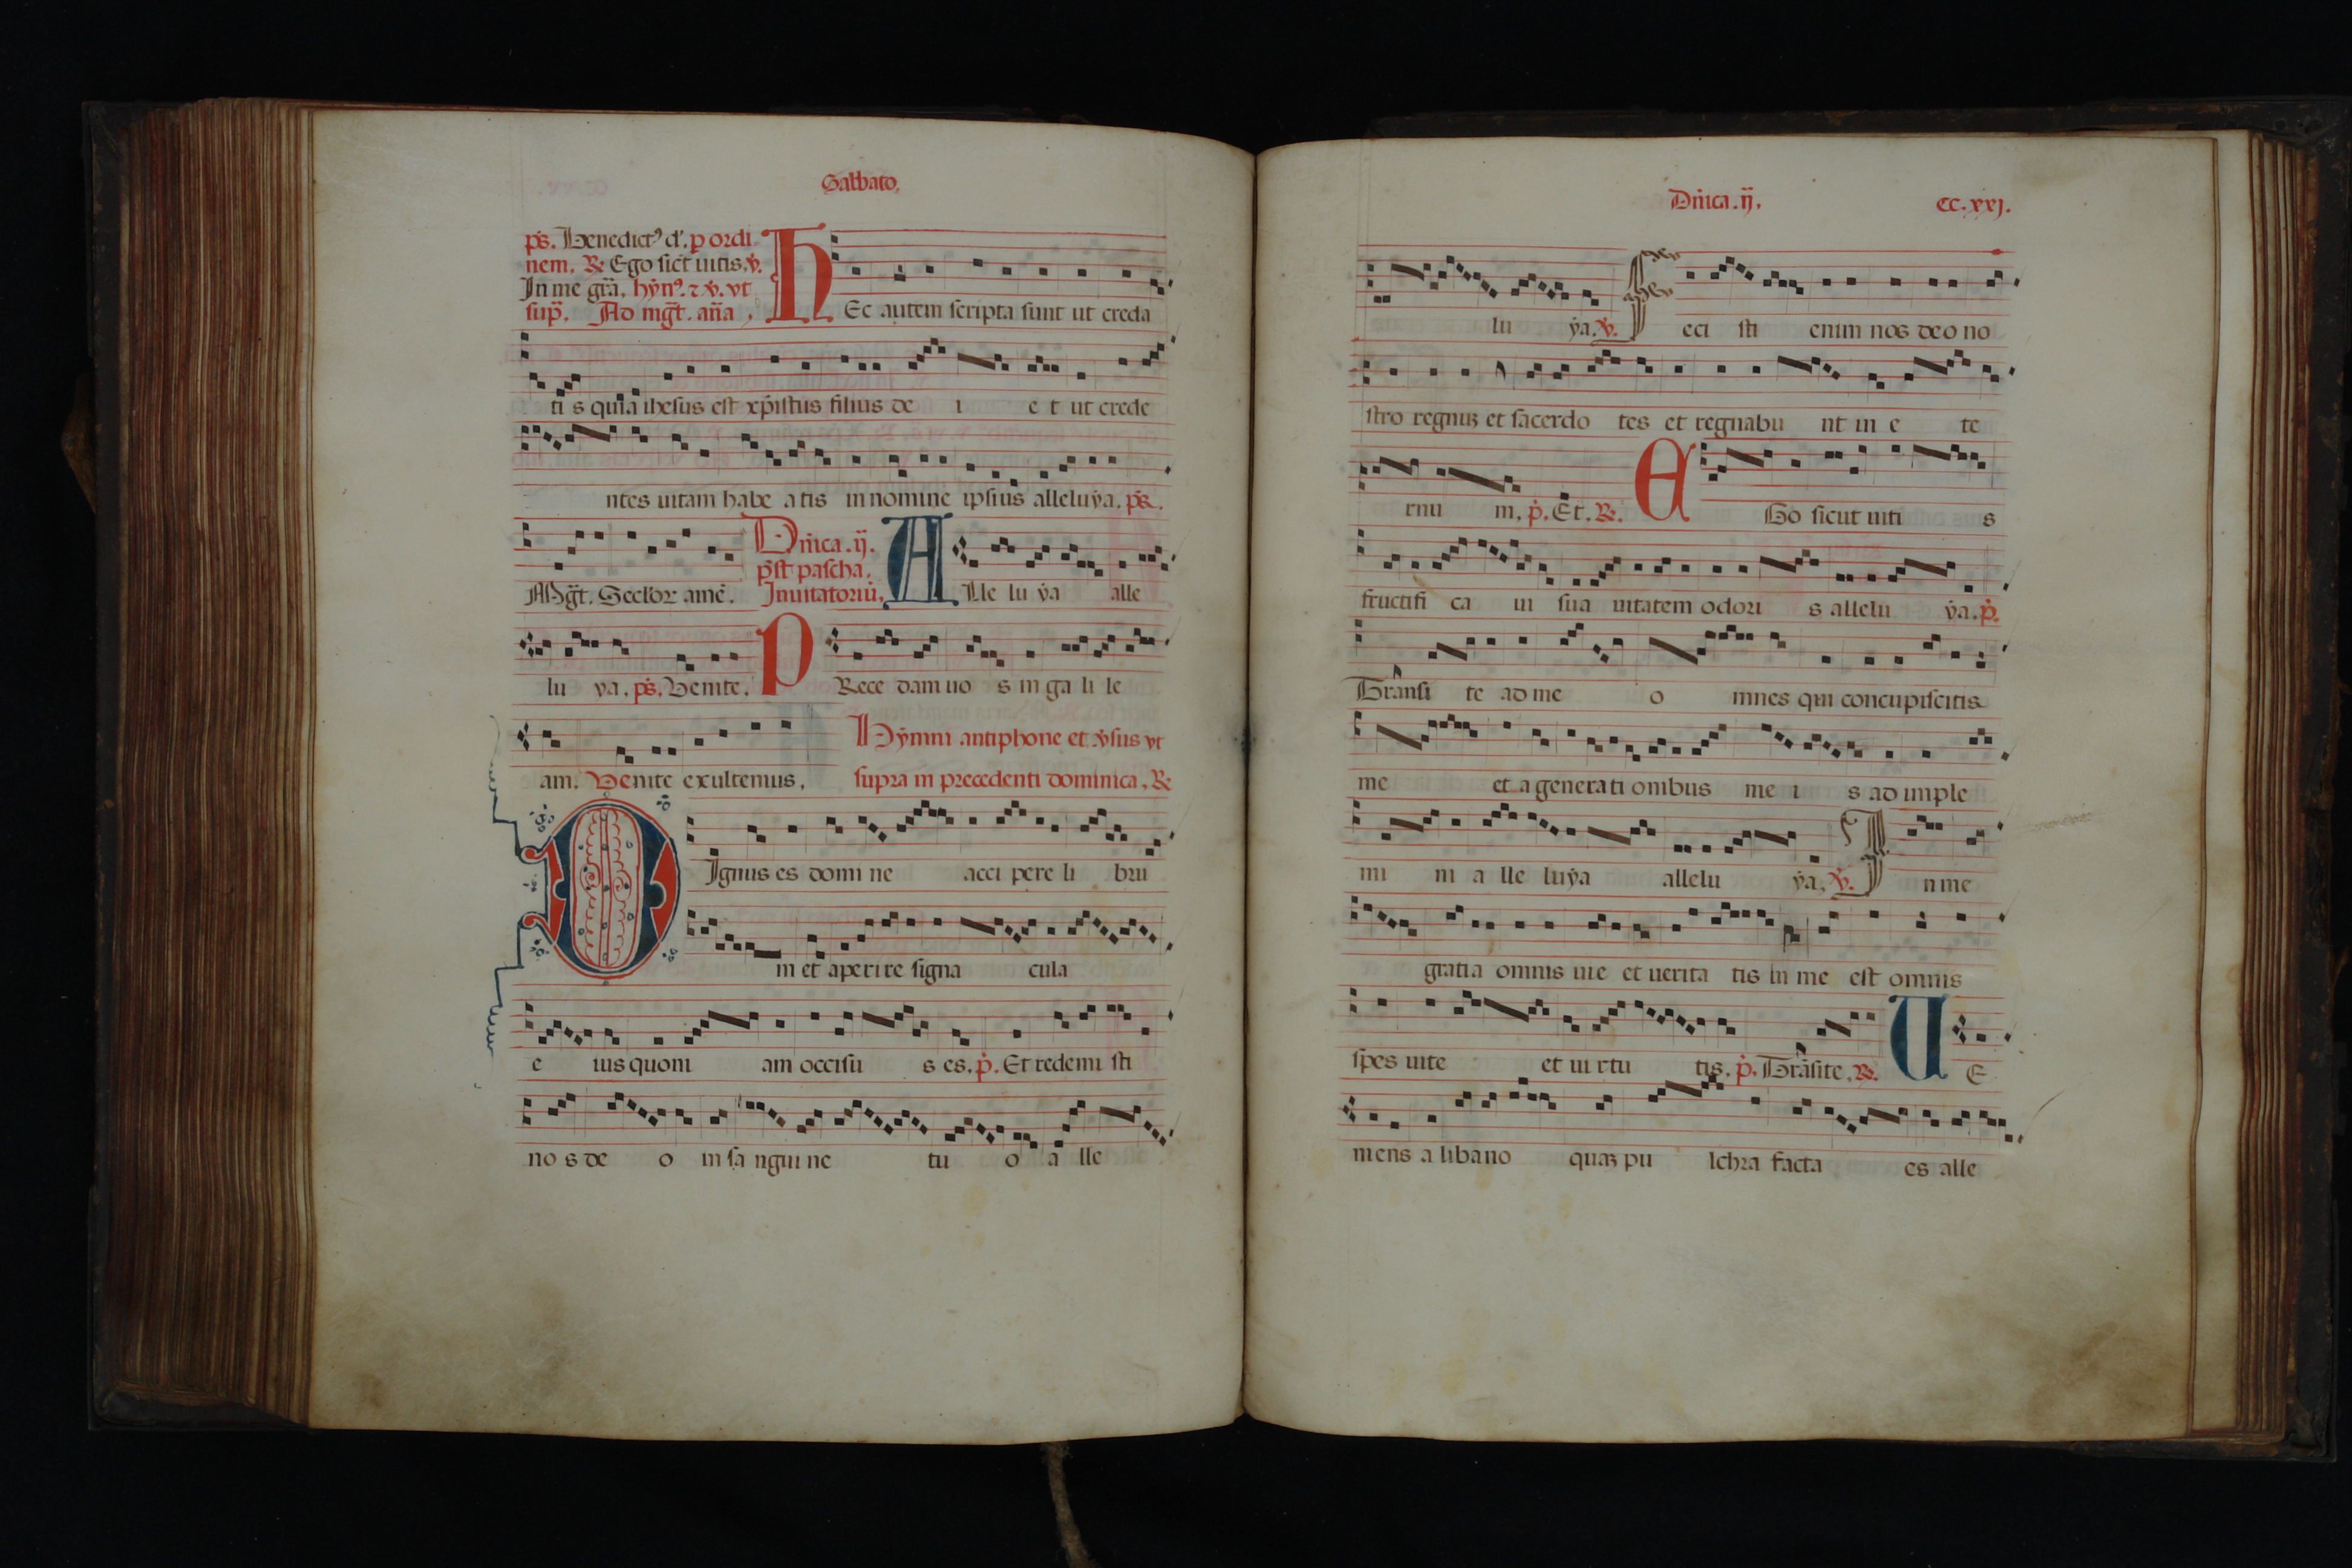 Sabbato.
ps. Benedict⁹ d'. p ordi
nem. ℟ Ego sic̄t uitis. ℣.
In me gr̄a. hȳn⁹. ⁊ ℣. vt
sup̄. Ad mḡt. an̄a,
HEc autem scripta sunt ut creda
ti s quia ihesus est xp̄istus filius de i e t ut crede
ntes uitam habe a tis in nomine ipsius alleluẏa. ps.
Mḡt. Seclor amē. Dn̄ica .ij.
pst pascha.
Inuitatoriū. ALle lu ẏa alle
lu ẏa. ps. Venite. PRece dam uo s in ga li le
am. Venite exultemus. Hẏmni antiphone et v̇sus vt
supra in precedenti dominica. ℟
DIgnus es domi ne acci pere li bru
m et aperi re signa cula
e ius quoni am occisu s es. p̄. Et redemi sti
no s de o in sa ngui ne tu o a lle
Dn̄ica .ij. CC.xxj.
lu ẏa. ℣. Feci sti enim nos deo no
stro regnuꝫ et sacerdo tes et regnabu nt in e te
rnu m. p̄. Et. ℟. EGo sicut uiti s
fructifi ca ui sua uitatem odori s allelu ẏa. p̄.
Trānsi te ad me o mnes qui concupiscitis
me et a generati onibus me i s ad imple
mi ni a lle luẏa allelu ẏa. ℣. In me
gratia omnis uie et uerita tis in me est omnis
spes uite et ui rtu tis. p̄. Trāsite. ℟. UE
niens a libano quaꝫ pu lchra facta es alle